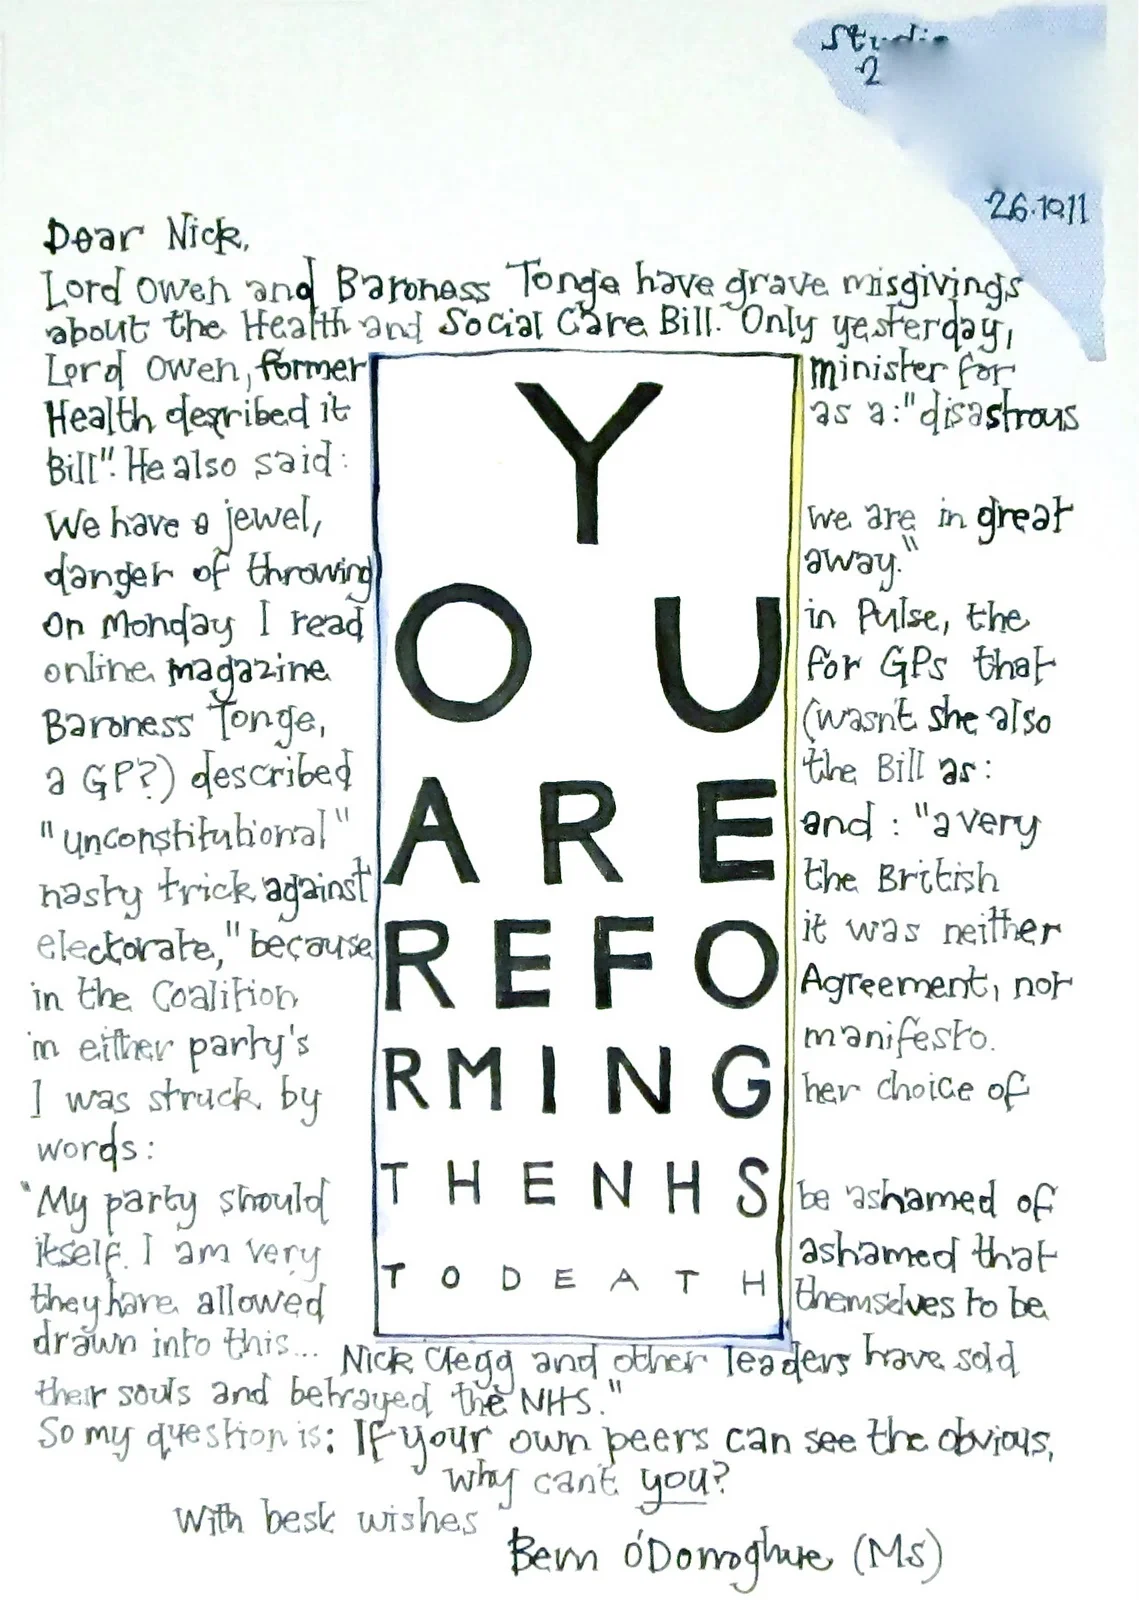 Studio
2
26.10.11
Dear Nick,
Lord Owen and Baroness Tonge have grave misgivings
about the Health and Social Care Bill. Only yesterday,
Lord Owen, former minister for
Health desqribed it as a: "disastrous
Bill". He also said:
We have a jewel, we are in great
danger of throwing away."
On Monday I read in Pulse, the
online magazine for GPs that
Baroness Tonge, (wasn't she also
a GP?) described the Bill as:
"unconstitutional" and: "a very
nasty trick against the British
electorate," because it was neither
in the Coalition Agreement, nor
in either party's manifesto.
I was struck by her choice of
words:
"My party should be ashamed of
itself. I am very ashamed that
they have allowed themselves to be
drawn into this... Nick Clegg and other leaders have sold
their souls and betrayed the NHS."
So my question is: If your own peers can see the obvious,
why can't you?
With best wishes
Bern O'Donoghue (Ms)
Y
O U
A R E
R E F O
R M I N G
T H E N H S
T O D E A T H